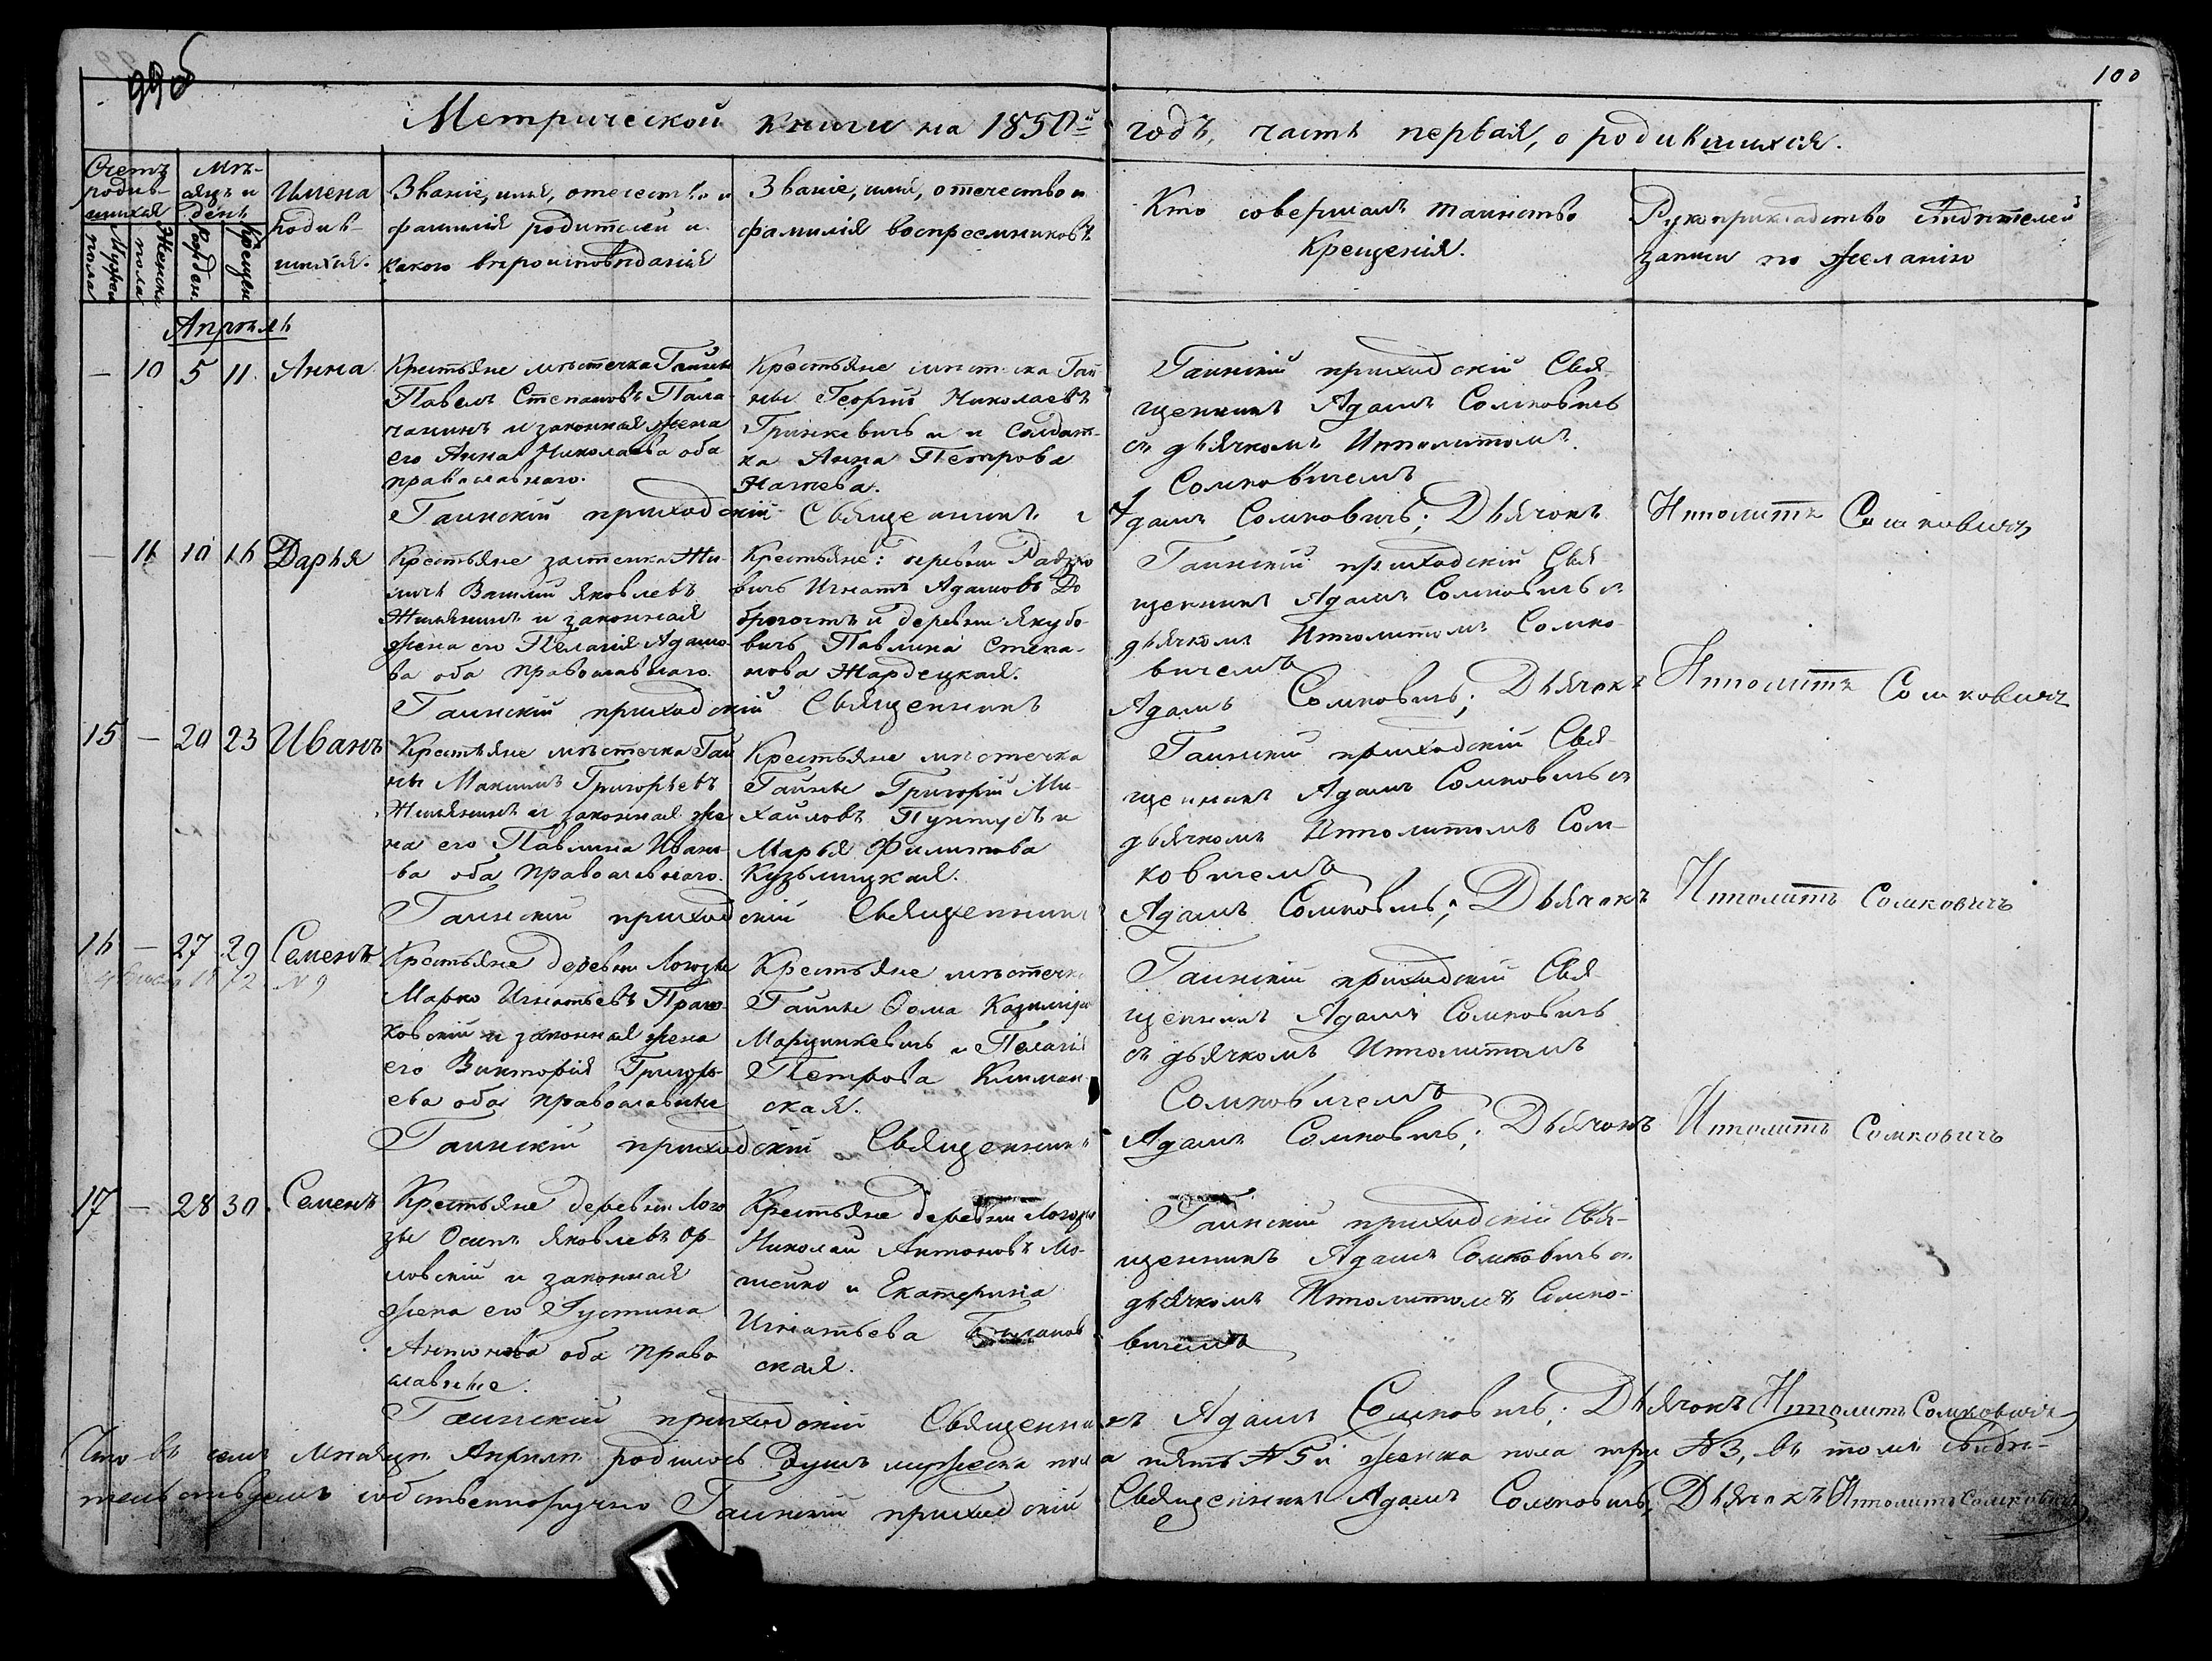 99об
100
Метрической книги на 1850й годъ, часть первая, о родившихся.
Счетъ родив-шихся
Мужеска пола
Женска пола
Мѣ-сяцъ и день
Рожден.
Крещен.
Имена
родив-
шихся.
Званіе, имя, отечество и
фамилія родителей и
какого вѣроисповѣданія
Званіе, имя, отечество и
фамилія воспреемниковъ
Кто совершалъ таинство
Крещенія.
Рукоприкладство свидѣтелей
записи по желанію
Апрѣль
— 10 5 11. Анна
Крестьяне мѣстечка Гайны
Павелъ Степановъ Пала-
чанинъ и законная жена
его Анна Николаева оба
православнаго.
Крестьяне мѣстечка Гай
ны Георгій Николаевъ
Гринкевичь и солдат-
ка Анна Петрова
Гаинскій приходскій Свя-
щенникъ Адамъ Сомковичь
съ дьячкомъ Ипполитомъ
Сомковичемъ
Гаинскій приходскій Священникъ Адамъ Сомковичь; Дьячокъ Ипполитъ Сомковичъ
— 11 10 16 Дарья
Крестьяне застенка Жи-
личь Василій Яковлевъ
Жилянинъ и законная
жена его Пелагія Адамо-
ва оба православнаго.
Крестьяне: деревни Радзко
вичь Игнатъ Адамовъ До
брогостъ и деревни Якубо-
вичь Павлина Степа-
нова Жардецкая.
Гаинскій приходскій Свя-
щенникъ Адамъ Сомковичь съ
дьячкомъ Ипполитомъ Сомко-
вичемъ
Гаинскій приходскій Священникъ Адамъ Сомковичь; Дьячокъ Ипполитъ Сомковичъ
15 — 20 23 Иванъ
Крестьяне мѣстечка Гай
ны Максимъ Григорьевъ
Жилянинъ и законная же
на его Павлина Ивано-
ва оба православнаго.
Крестьяне мѣстечка
Гайны Григорій Ми-
хайловъ Пунтусъ и
Марья Филипова
Кузьмицкая.
Гаинскій приходскій Свя-
щенникъ Адамъ Сомковичь съ
дьячкомъ Ипполитомъ Сом-
ковичемъ
Гаинскій приходскій Священникъ Адамъ Сомковичь; Дьячокъ Ипполитъ Сомковичъ
16 — 27 29 Семенъ
1872 N 9
Крестьяне деревни Логозы
Марко Игнатьевъ
и законная жена
его Викторія Григорь-
ева оба православные
Крестьяне мѣстечка
Гайны Ѳома Казиміровъ
Марцинкевичь и Пелагія
Петрова Климан-
ская.
Гаинскій приходскій Свя-
щенникъ Адамъ Сомковичь
съ дьячкомъ Ипполитомъ
Сомковичемъ
Гаинскій приходскій Священникъ Адамъ Сомковичь; Дьячокъ Ипполитъ Сомковичъ
17 — 28 30. Семенъ
Крестьяне деревни Лого
зы Осипъ Яковлевъ Ор-
ловскій и законная
жена его Густина
Антонова оба право
славные.
Крестьяне деревни Логозы
Николай Антоновъ Мо-
шейко и Екатерина
Игнатьева
ская.
Гаинскій приходскій Свя-
щенникъ Адамъ Сомковичь съ
дьячкомъ Ипполитомъ Сомко-
вичемъ
Гаинскій приходскій Священникъ Адамъ Сомковичь; Дьячокъ Ипполитъ Сомковичъ
Что въ семъ мѣсяцѣ Апрѣлѣ родилось душъ мужеска пола пять №5 и женска пола три №3, въ томъ свидѣ-
тельствуемъ собственноручно Гаинскій приходскій Священникъ Адамъ Сомковичь, Дьячокъ Ипполитъ Сомковичъ